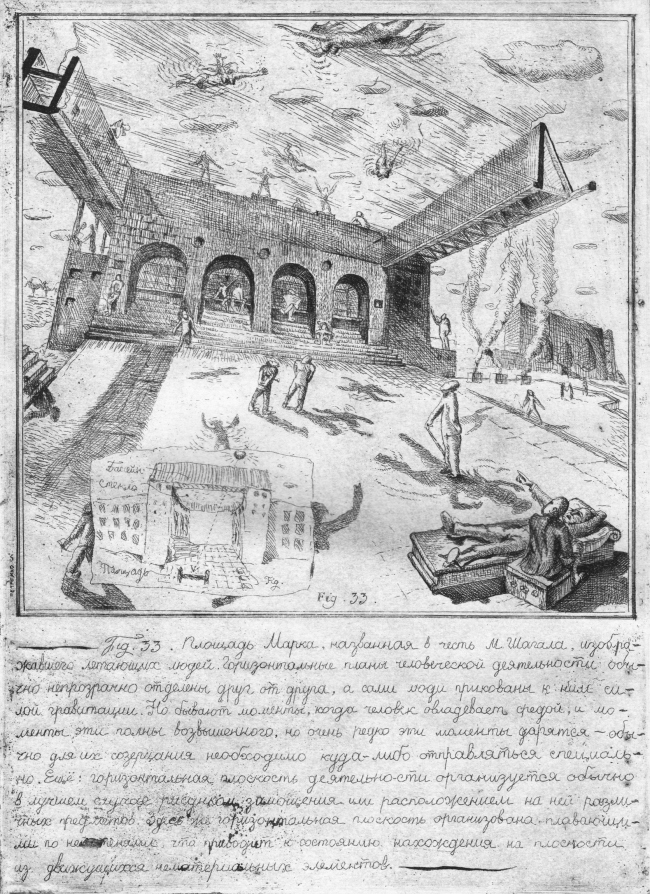 Fig. 33
Бассейн
Стекло
Площадь
Fig.
Fig. 33.
Fig. 33. Площадь Марка, названная в честь М. Шагала, изобра-
жавшего летающих людей. Горизонтальные планы человеческой деятельности обы-
чно непрозрачно отделены друг от друга, а сами люди прикованы к ним си-
лой гравитации. Но бывают моменты, когда человек овладевает средой, и мо-
менты эти полны возвышенного, но очень редко эти моменты дарятся – обы-
чно для их созерцания необходимо куда-либо отправляться специаль-
но. Ещё: горизонтальная плоскость деятельности организуется обычно
в лучшем случае рисунком замощения или расположением на ней разли-
чных предметов. Здесь же горизонтальная плоскость организована плавающи-
ми по ней тенями, что приводит к состоянию нахождения на плоскости
из движущихся нематериальных элементов.